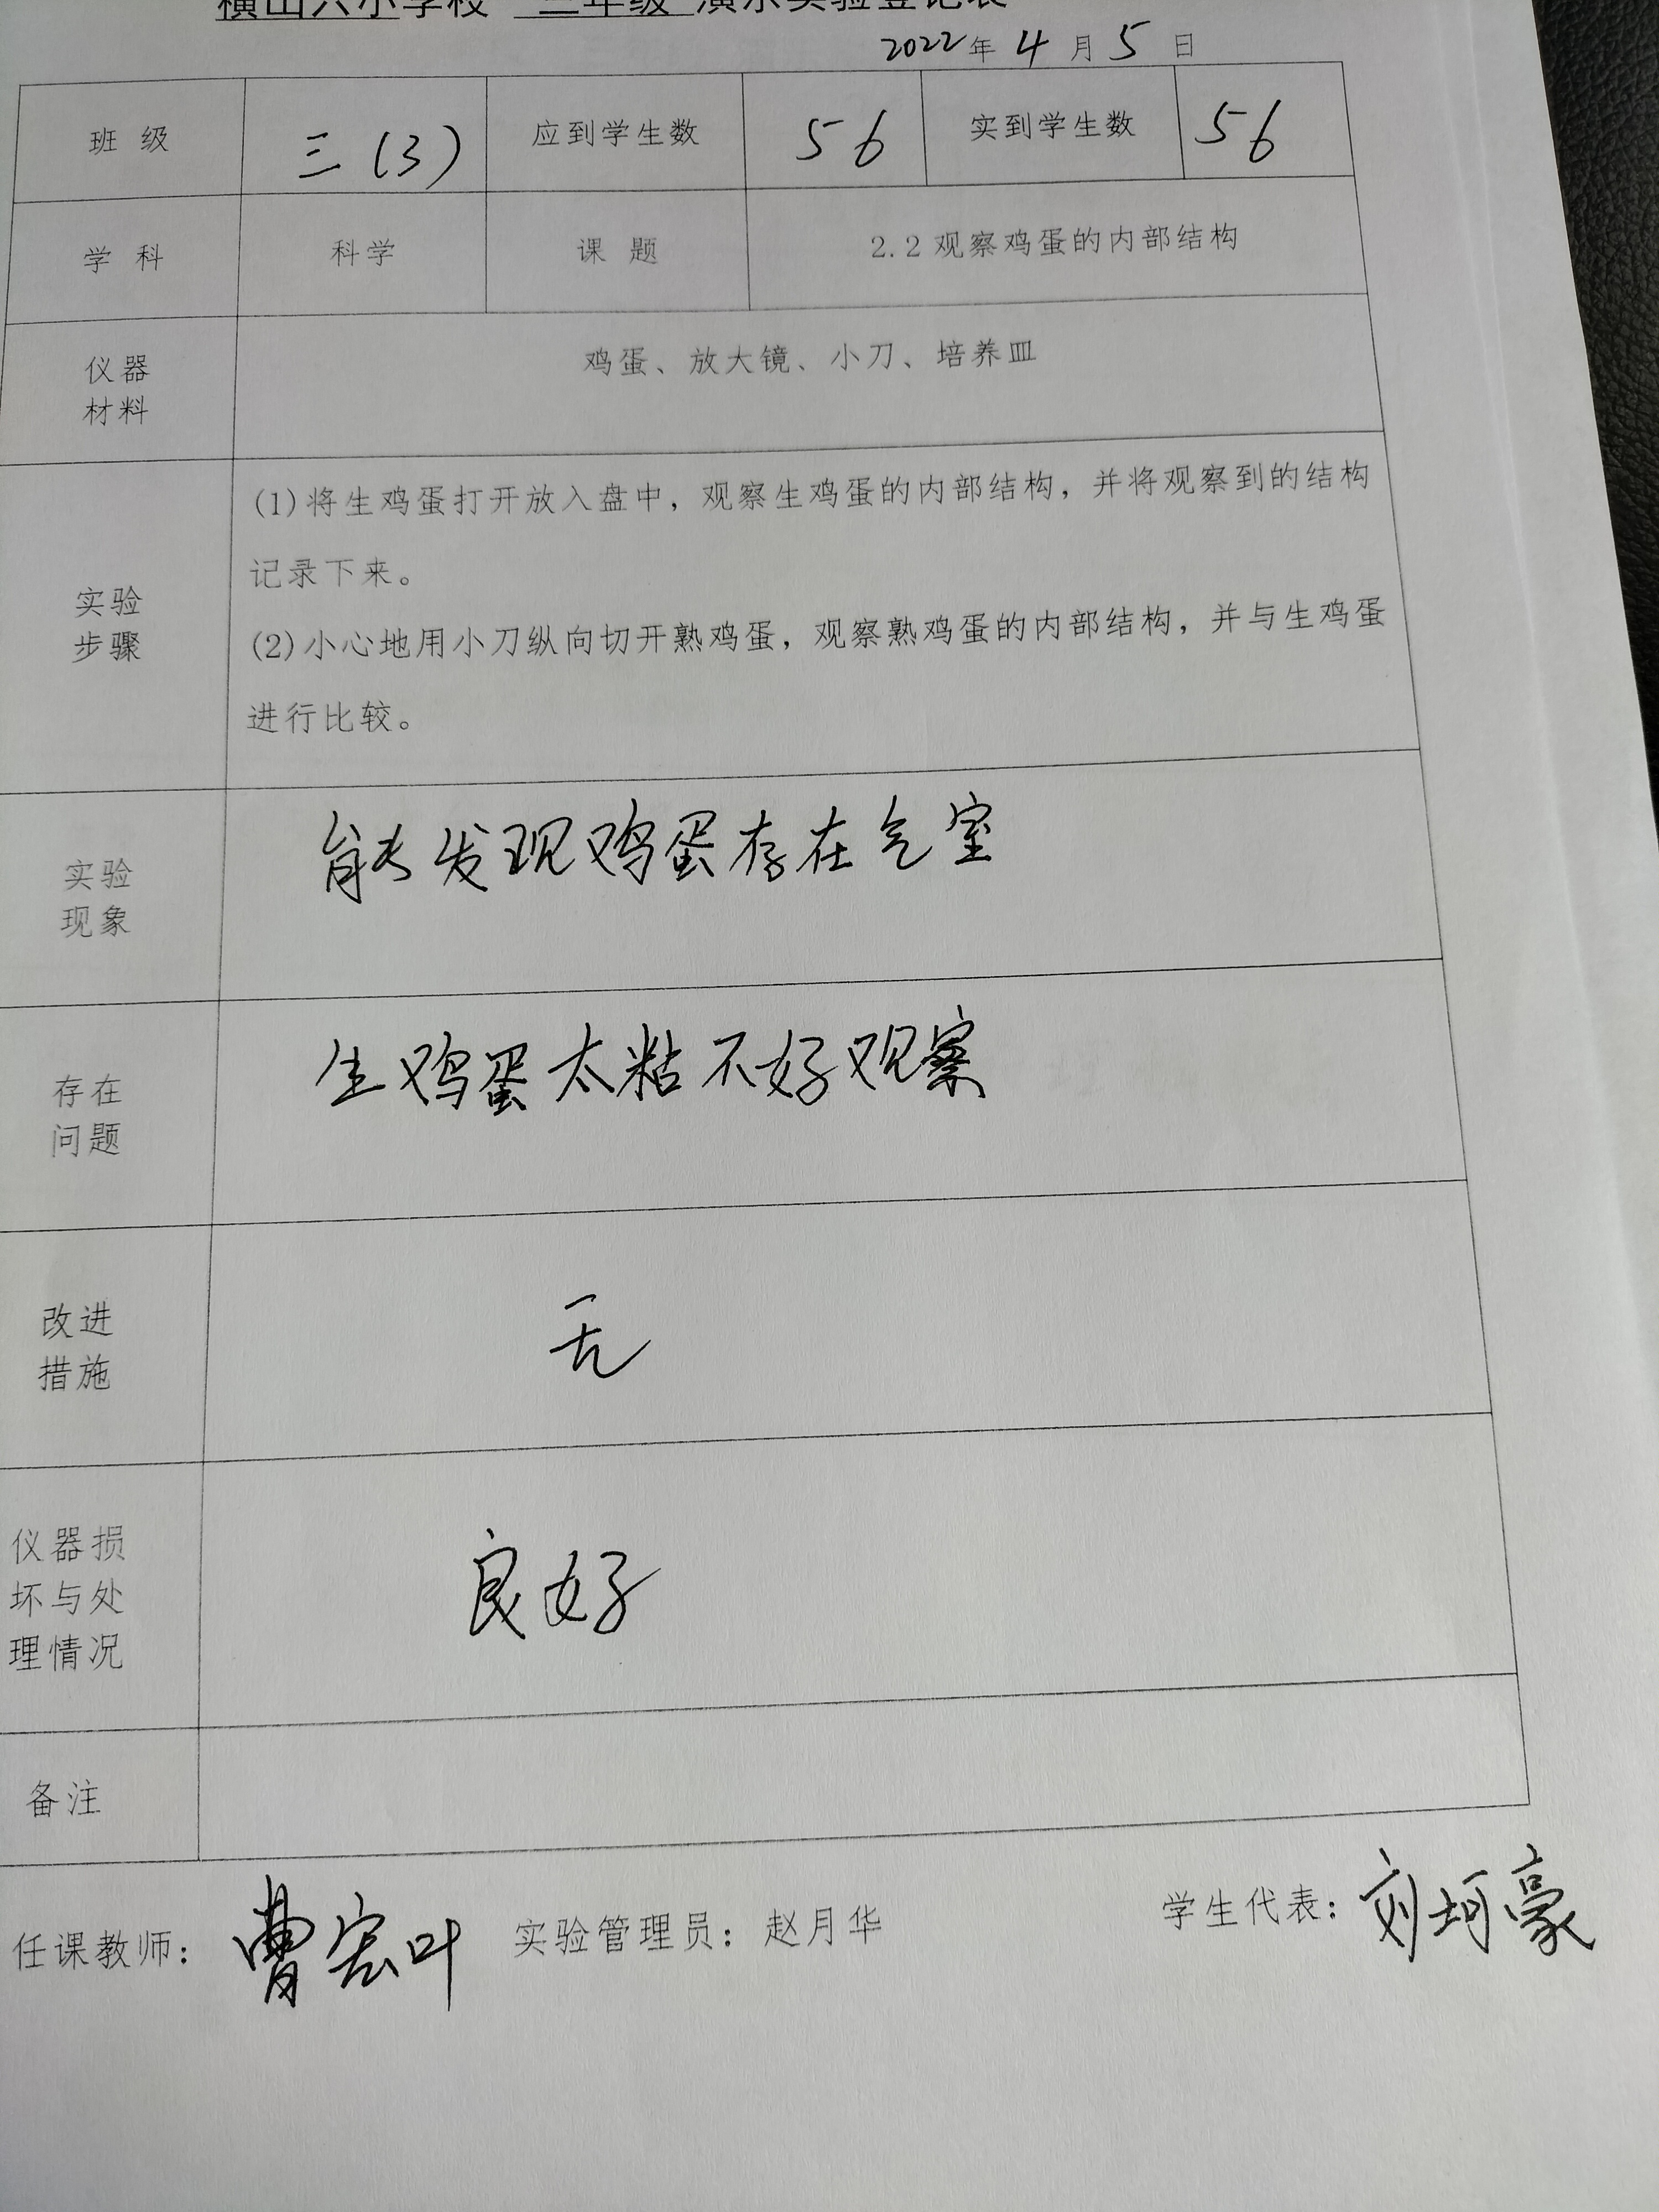 横山六小学校 三年级 演示实验登记表
2022年 4 月 5 日
班 级 三(3) 应到学生数 56 实到学生数 56
学 科 科学 课 题 2.2观察鸡蛋的内部结构
仪器
材料
鸡蛋、放大镜、小刀、培养皿
实验
步骤
(1)将生鸡蛋打开放入盘中，观察生鸡蛋的内部结构，并将观察到的结构
记录下来。
(2)小心地用小刀纵向切开熟鸡蛋，观察熟鸡蛋的内部结构，并与生鸡蛋
进行比较。
实验
现象
能发现鸡蛋存在气室
存在
问题
生鸡蛋太粘不好观察
改进
措施
无
仪器损
坏与处
理情况
良好
备注
任课教师： 曹宏叶 实验管理员：赵月华 学生代表：刘坷豪